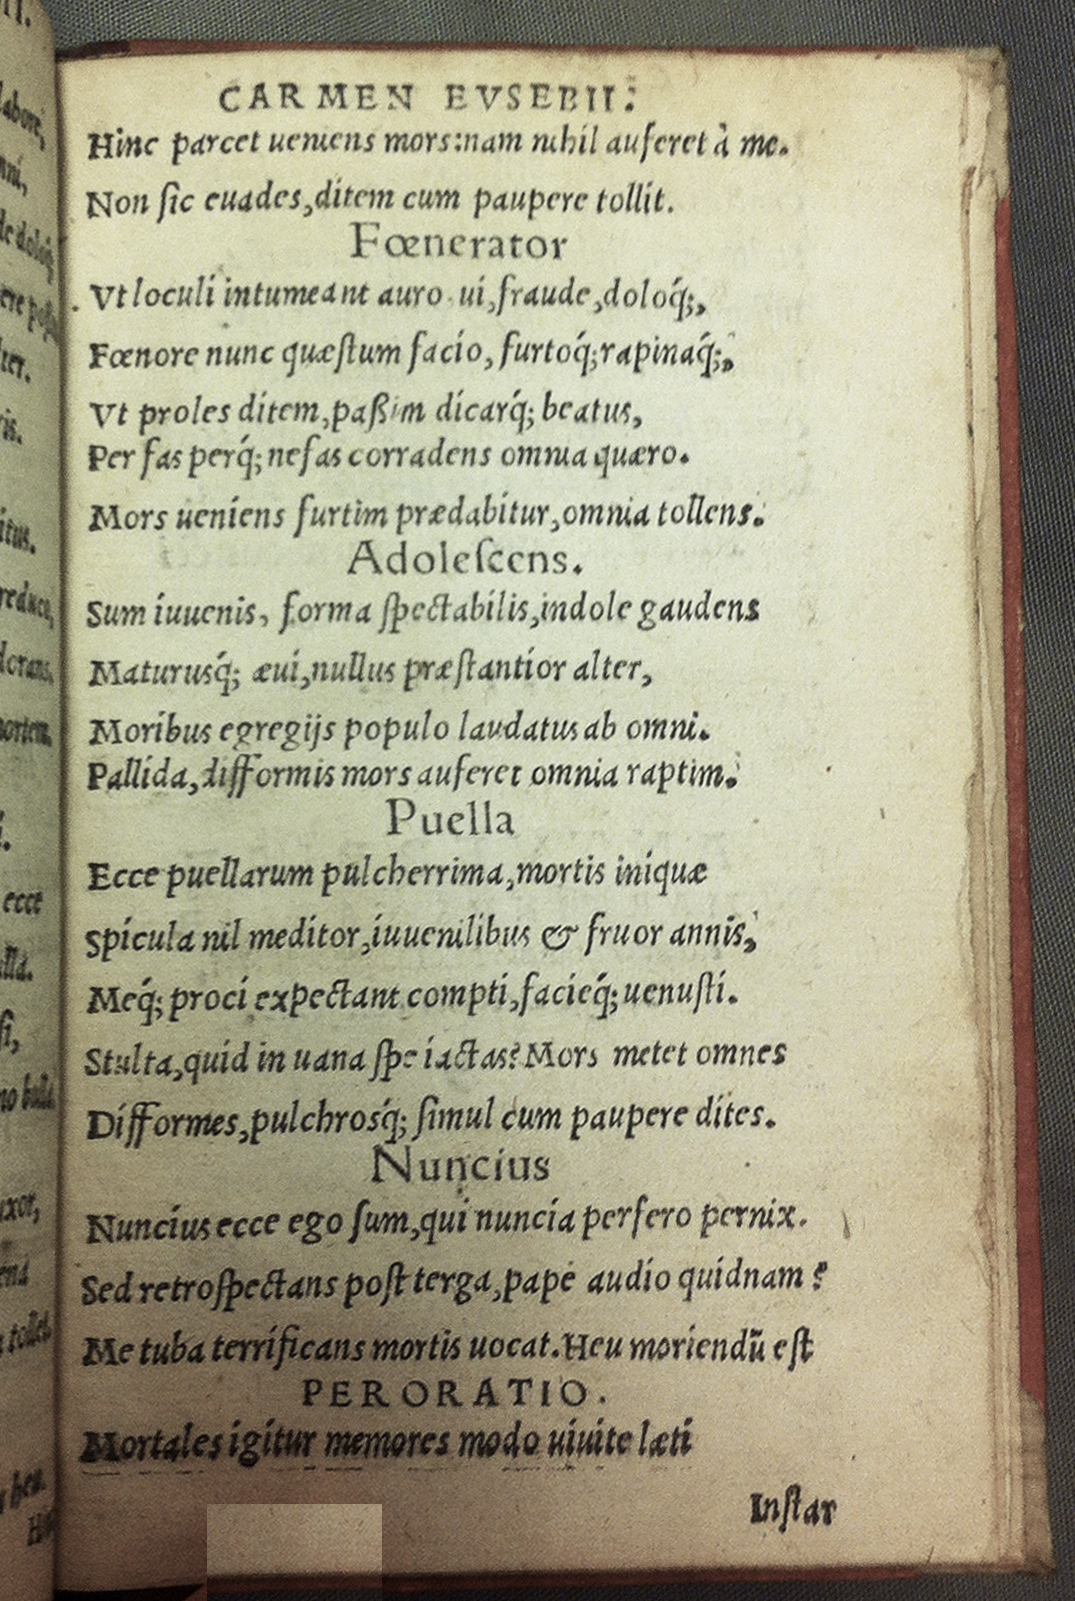 CARMEN EVSEBII:
Hinc parcet ueniens mors:nam nihil auferet à me.
Non ſic euades,ditem cum paupere tollit.
Fœnerator
Vt loculi intumeant auro ui,fraude,doloq́;,
Fœnore nunc quæſtum facio, furtoq́;rapinaq́;,
Vt proles ditem,paßim dicarq́; beatus,
Per fas perq́; nefas corradens omnia quæro.
Mors ueniens furtim prædabitur,omnia tollens.
Adoleſcens.
Sum iuuenis, forma ſpectabilis,indole gaudens
Maturusq́; æui,nullus præſtantior alter,
Moribus egregijs populo laudatus ab omni.
Pallida,difformis mors auferet omnia raptim.
Puella
Ecce puellarum pulcherrima,mortis iniquæ
Spicula nil meditor,iuuenilibus & fruor annis,
Meq́; proci expectant compti,facieq́; uenuſti.
Stulta,quid in uana ſpe iactas? Mors metet omnes
Difformes,pulchrosq́; ſimul cum paupere dites.
Nuncius
Nuncius ecce ego ſum,qui nuncia perfero pernix.
Sed retroſpectans poſt terga,papè audio quidnam?
Me tuba terrificans mortis uocat.Heu moriendũ eſt
PERORATIO.
Mortales igitur memores modo uiuite læti
Inſtar